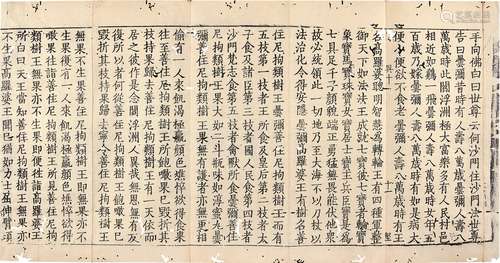 平向佛白曰世尊云何沙門住沙門法世尊
告曰曇彌昔時有人壽八萬歲曇彌人壽八
萬歲時此閻浮洲極大富樂多有人民村邑
相近如雞一飛曇彌人壽八萬歲時女年五
百歲乃嫁曇彌人壽八萬歲時有如是病大
便小便欲不食老曇彌人壽八萬歲時有王
名高羅婆聰明智慧為轉輪王有四種軍整
御天下如法法王成就七寶彼七寶者輪寶
象寶馬寶珠寶女寶居士寶主兵臣寶是為
七具足千子顏貌端正勇猛無畏能伏他衆
故必統領此一切地乃至大海不以刀杖以
法治化令得安隱曇彌高羅婆王有樹名善
住尼拘類樹王曇彌善住尼拘類樹王而有
五枝第一枝者王所食及皇后第二枝者太
子食及諸臣第三枝者國人民食第四枝者
沙門梵志食第五枝者禽獸所食曇彌善住
尼拘類樹王果大如二升瓶味如淳蜜丸曇
彌善住尼拘類樹王果無有護者亦無更相
偷有一人來飢渴極羸顏色憔悴欲得食果
往至善住尼拘類樹王所飽噉果已毀折其
枝持果歸去善住尼拘類樹王有一天依而
居之彼作是念閻浮洲人異哉無恩無有反
復所以者何從善住尼拘類樹王飽噉果已
毀折其枝持果歸去寧令善住尼拘類樹王
無果不生果善住尼拘類樹王即無果亦不
生果復有一人來飢渴極羸顏色憔悴欲得
噉果往詣善住尼拘類樹王所見善住尼拘
類樹王無果亦不生果即便往詣高羅婆王
所白曰天王當知善住尼拘類樹王無果亦
不生果高羅婆王聞已猶如力士屈伸臂頃